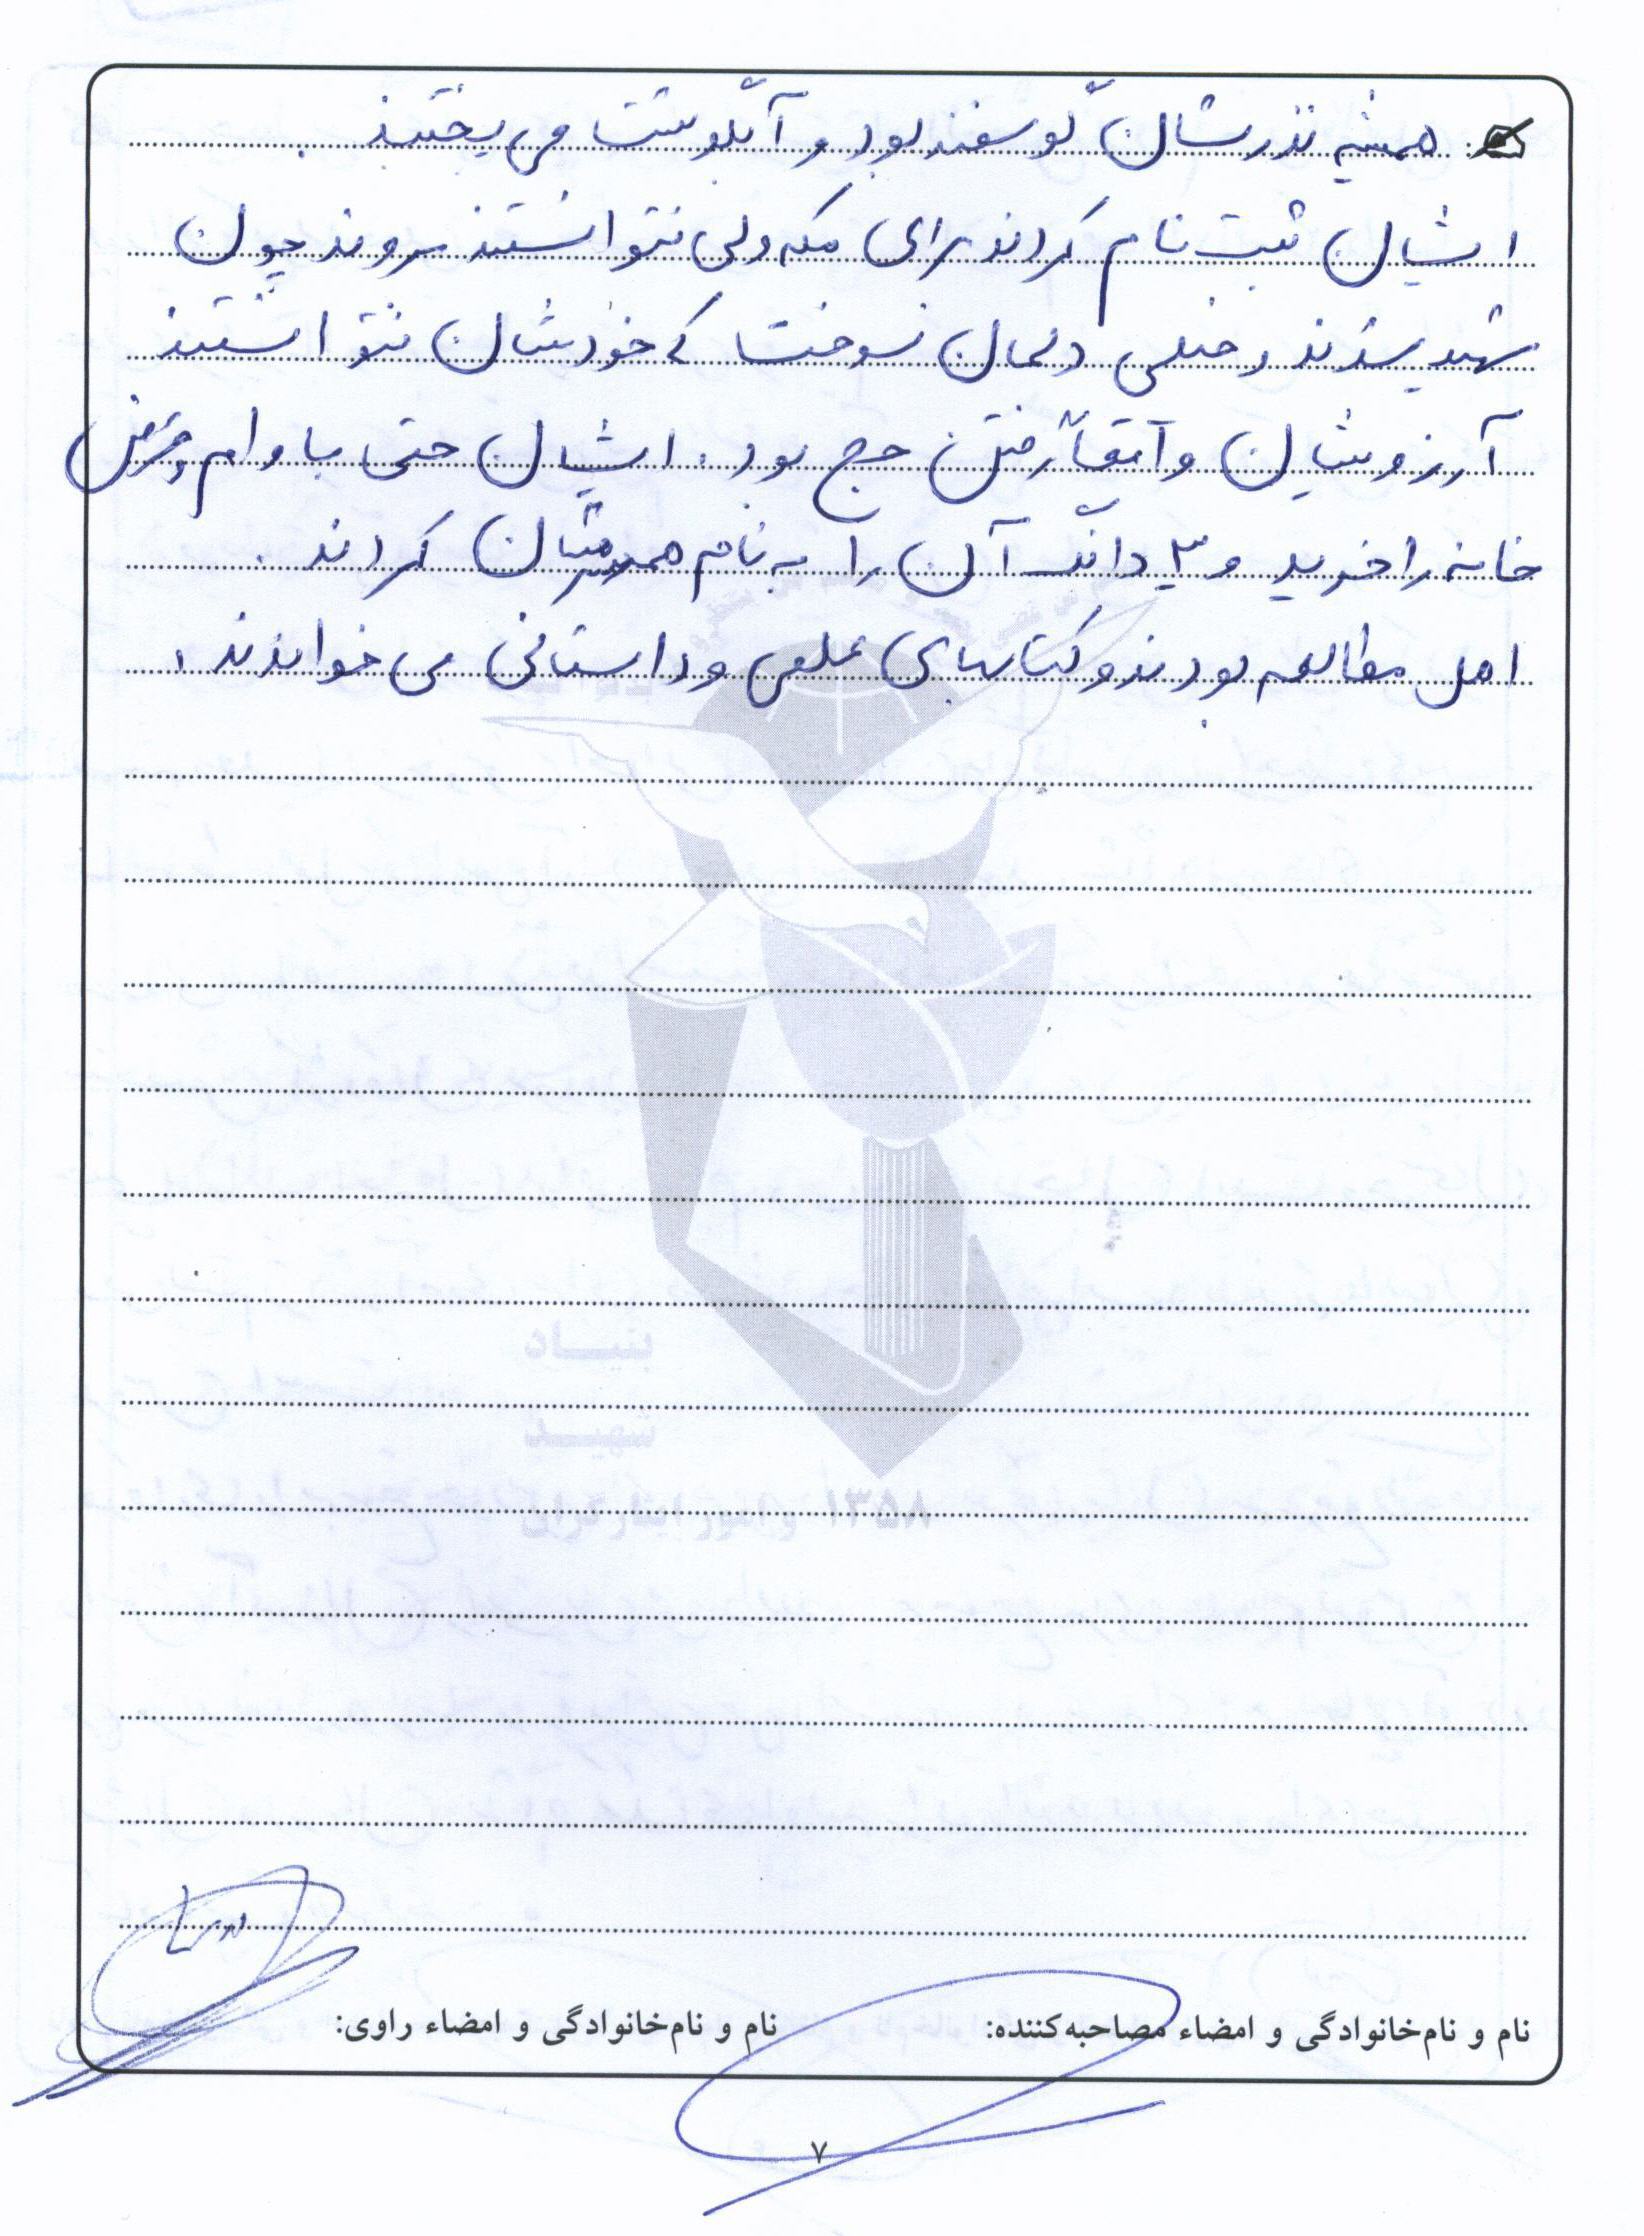 همیشه نذرشان گوسفند بود و آبگوشت می پختند.
ایشان ثبت نام کردند برای مکه ولی نتوانستند بروند چون
شهید شدند و خیلی دلمان سوخت که خودشان نتوانستند
آرزویشان واقعاً رفتن حج بود. ایشان حتی با وام و قرض
خانه را خرید و ۳ دانگ آن را به نام همسرشان کردند.
اهل مطالعه بودند و کتابهای علمی و داستانی می خواندند.
بنیاد
شهید
و امور ایثارگران ۱۳۵۸
نام و نام‌خانوادگی و امضاء مصاحبه‌کننده: نام و نام‌خانوادگی و امضاء راوی:
۷